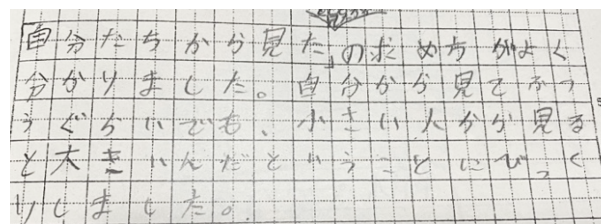 「自分たちから見た」の求め方がよく
分かりました。自分から見てふつ
うぐらいでも、小さい人から見る
と大きいんだということにびっく
りしました。